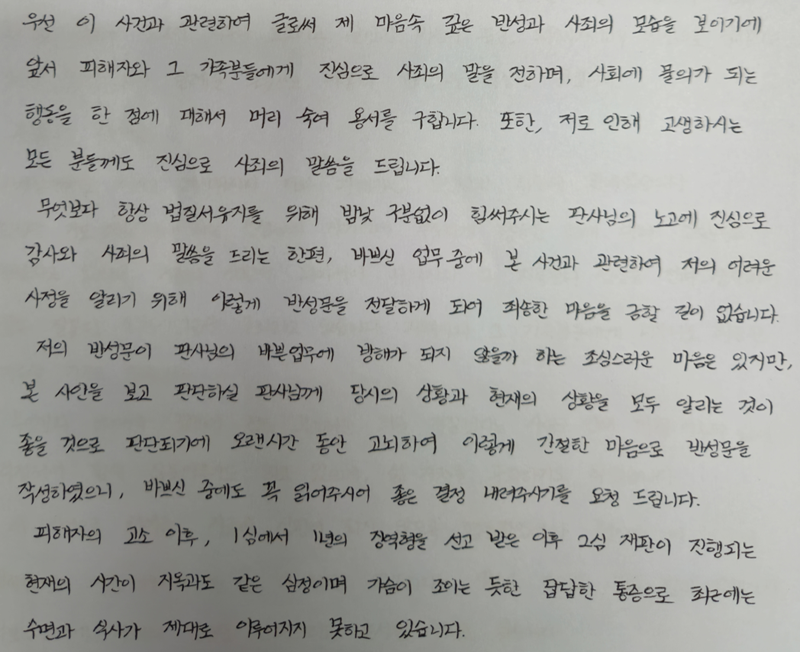 우선 이 사건과 관련하여 글로써 제 마음속 깊은 반성과 사죄의 모습을 보이기에
앞서 피해자와 그 가족분들에게 진심으로 사죄의 말을 전하며, 사회에 물의가 되는
행동을 한 점에 대해서 머리 숙여 용서를 구합니다. 또한, 저로 인해 고생하시는
모든 분들께도 진심으로 사죄의 말씀을 드립니다.
무엇보다 항상 법질서유지를 위해 밤낮 구분없이 힘써주시는 판사님의 노고에 진심으로
감사와 사죄의 말씀을 드리는 한편, 바쁘신 업무 중에 본 사건과 관련하여 저의 어려운
사정을 알리기 위해 이렇게 반성문을 전달하게 되어 죄송한 마음을 금할 길이 없습니다.
저의 반성문이 판사님의 바쁜업무에 방해가 되지 않을까 하는 조심스러운 마음은 있지만,
본 사안을 보고 판단하실 판사님께 당시의 상황과 현재의 상황을 모두 알리는 것이
좋을 것으로 판단되기에 오랜시간 동안 고뇌하여 이렇게 간절한 마음으로 반성문을
작성하였으니, 바쁘신 중에도 꼭 읽어주시어 좋은 결정 내려주시기를 요청 드립니다.
피해자의 고소 이후, 1심에서 1년의 징역형을 선고 받은 이후 2심 재판이 진행되는
현재의 시간이 지옥과도 같은 심정이며 가슴이 조이는 듯한 답답한 통증으로 최근에는
수면과 식사가 제대로 이루어지지 못하고 있습니다.